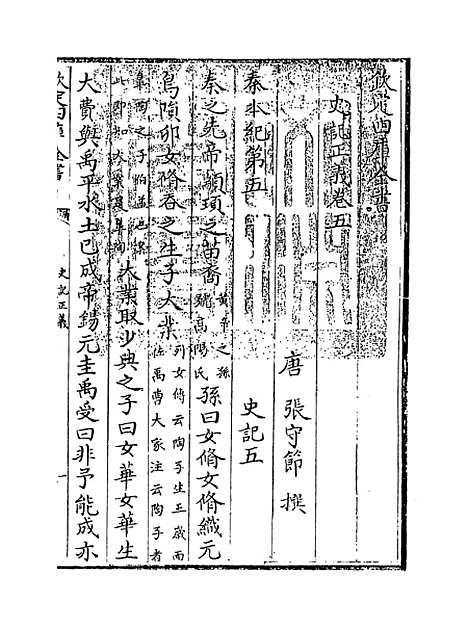 欽定四庫全書
史記正義卷五
唐 張守節 撰
秦本紀第五 史記五
秦之先帝顓頊之苗裔黃帝之孫號高陽氏孫曰女脩女脩織元
鳥隕卵女脩吞之生子大業列女傳云陶子生五歲而佐禹曹大家注云陶子者
皋陶之子伯益也按此即知大業是皋陶大業取少典之子曰女華女華生
大費與禹平水土已成帝錫元圭禹受曰非予能成亦
欽定四庫全書
史記正義
一